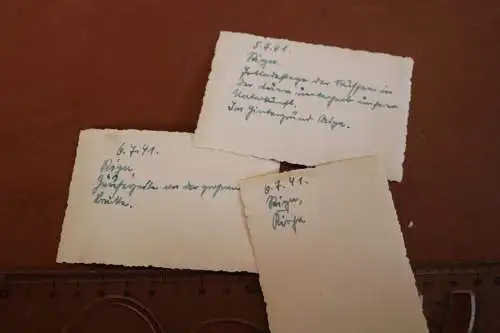 5.7.41.
Riga.
der Russen in
der Düna unterhalb unserer
Unterkunft.
Im Hintergrund Riga.
6.7.41.
Riga,
an der großen
Brücke.
6.7.41.
Riga,
Kirche